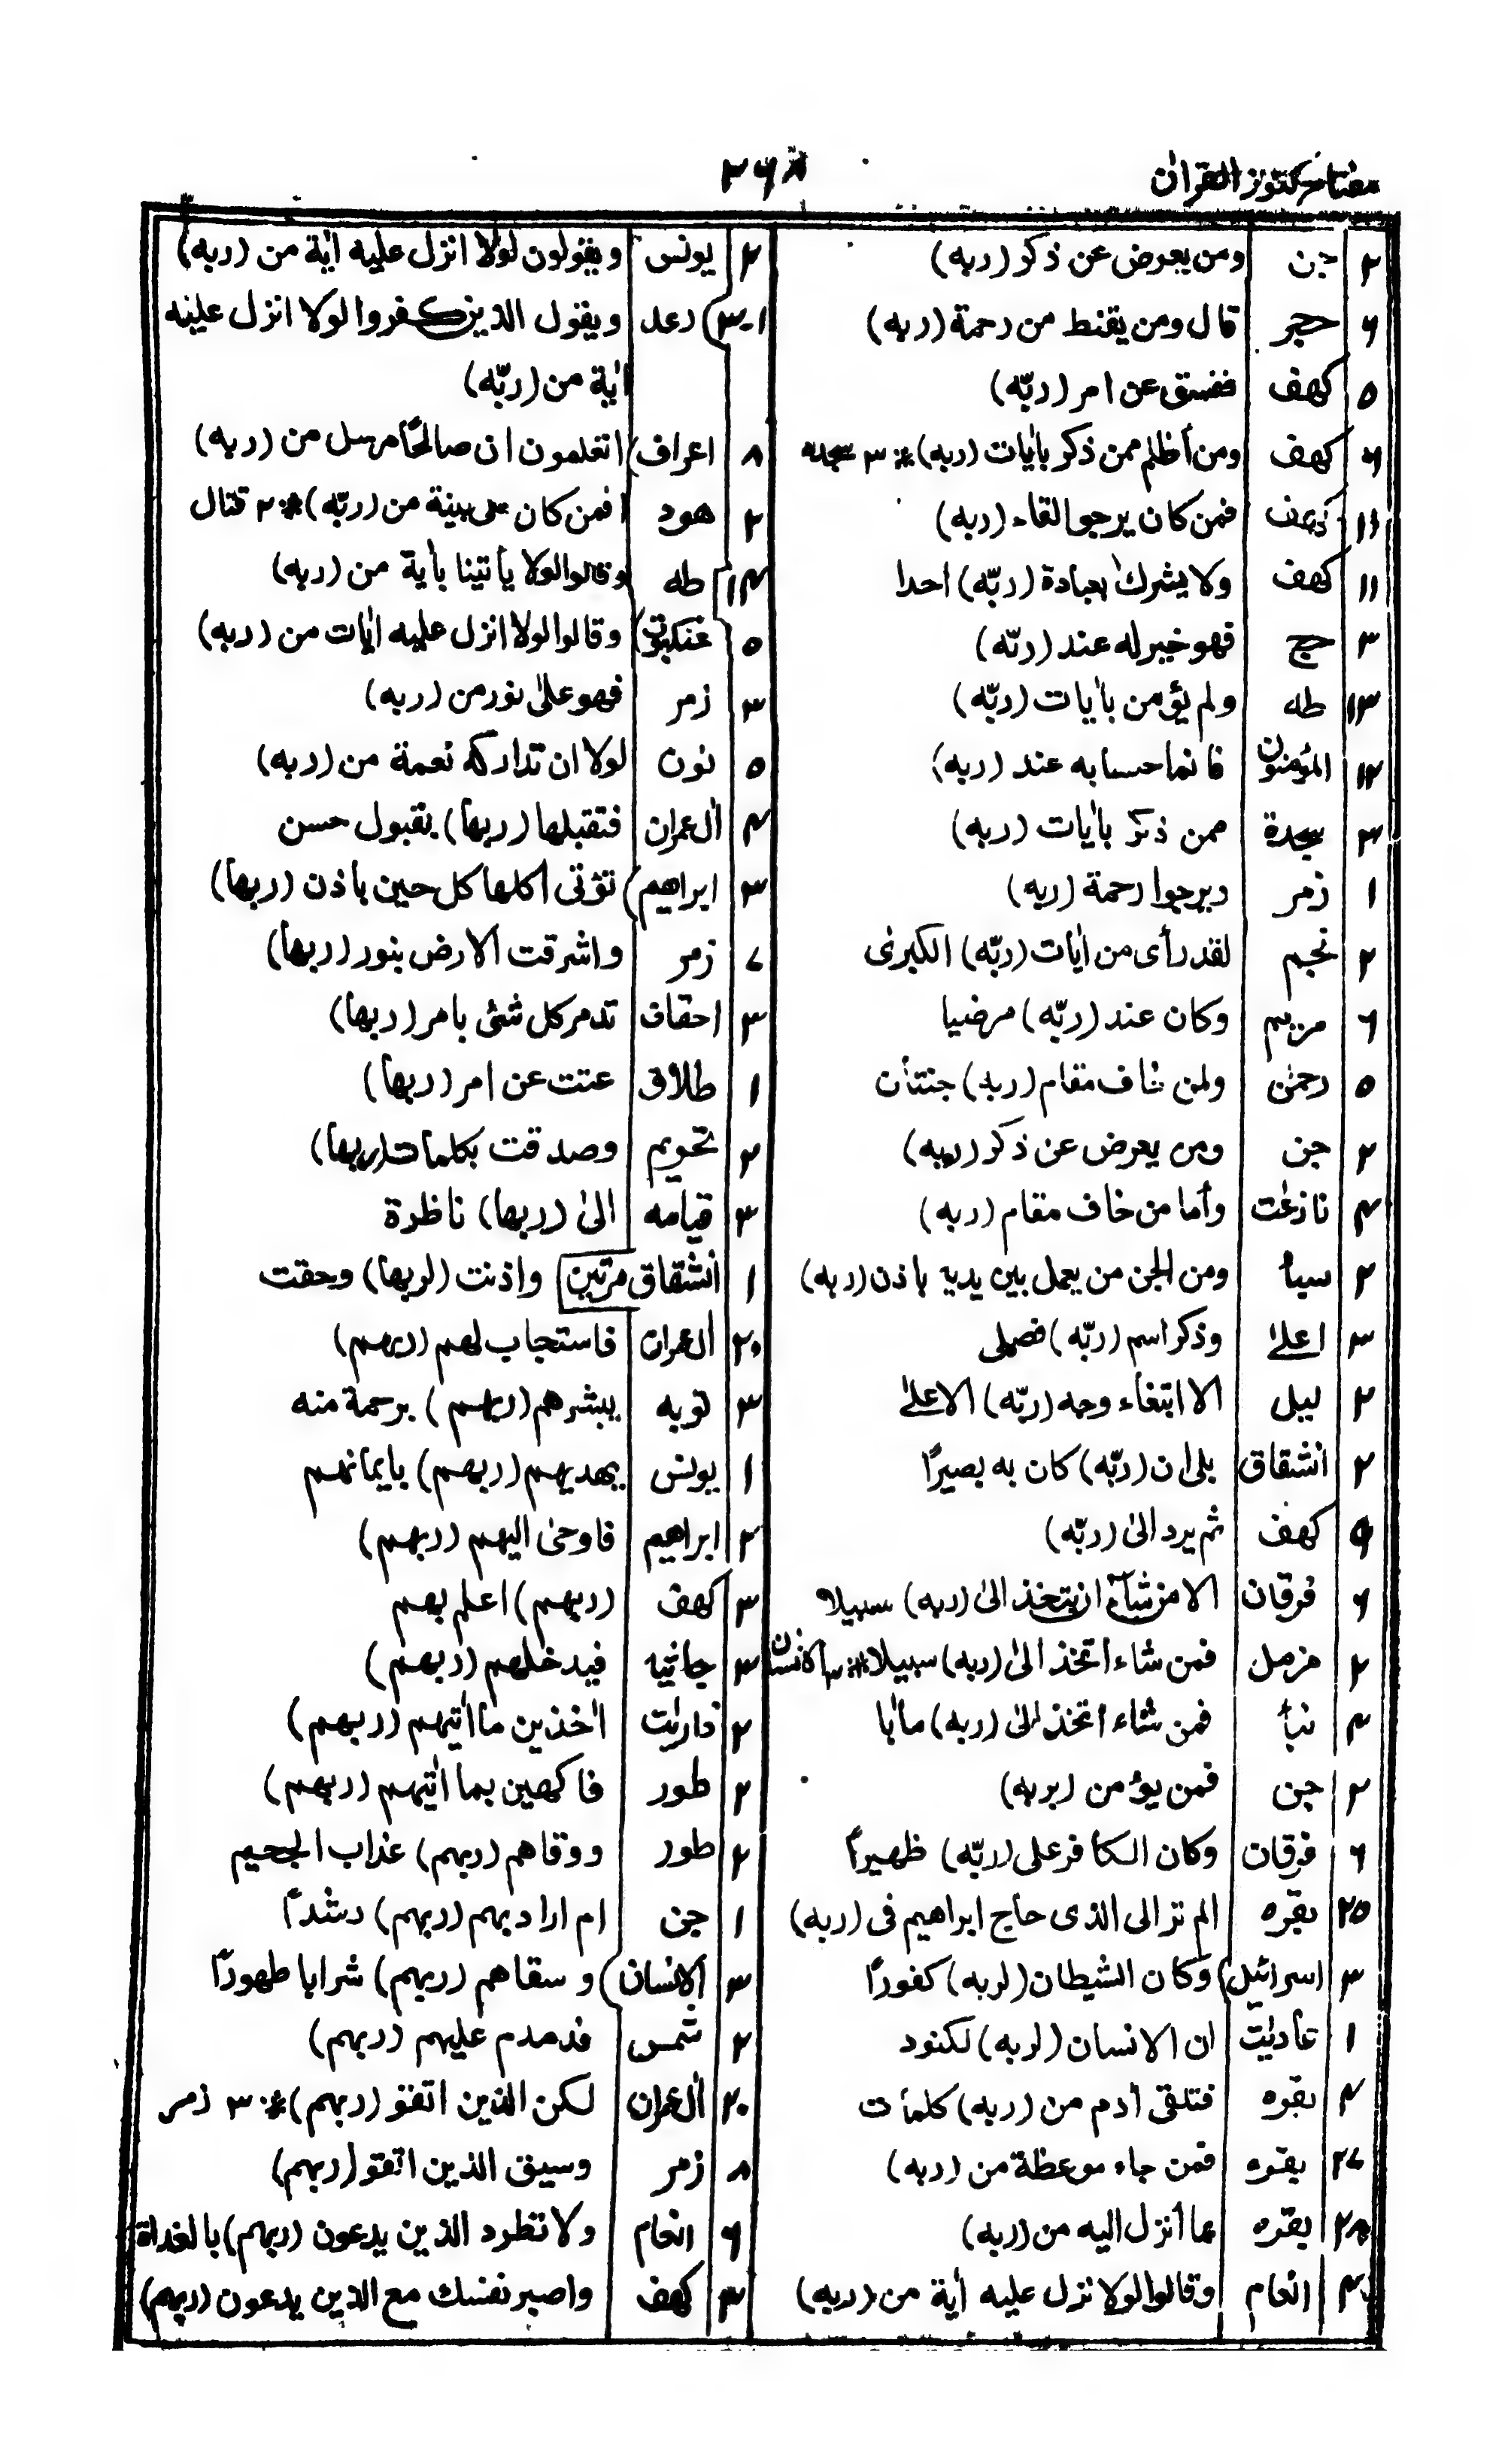 مفتاح كنوز القران
۲۶۸
۲ جن ومن يعرض عن ذكر (ربه)
۶ حجر قال ومن يقنط من رحمة (ربه)
۵ كهف ففسق عن امر (ربّه)
۶ كهف ومن أظلم ممن ذكر بايات (ربه) * ۳ سجده
۱۱ كهف فمن كان يرجوا لقاء (ربه)
۱۱ كهف ولا يشرك بعبادة (ربّه) احدا
۳ حج فهو خير له عند (ربّه)
۱۳ طه ولم يؤمن بأيات (ربّه)
۱۲ المؤمنون فانما حسابه عند (ربه)
۳ سجدة ممن ذكر بايات (ربه)
۱ زمر ويرجوا رحمة (ربه)
۲ نجم لقد رأى من ايات (ربّه) الكبرى
۶ مريم وكان عند (ربّه) مرضيا
۵ رحمن ولمن خاف مقام (ربه) جنتان
۲ جن ومن يعرض عن ذكر (ربه)
۴ نازعت وأما من خاف مقام (ربه)
۲ سبأ ومن الجن من يعمل بين يديه باذن (ربه)
۳ اعلے وذكر اسم (ربّه) فصلى
۲ ليل الا ابتغاء وجه (ربّه) الاعلے
۲ انشقاق بلى ان (ربّه) كان به بصيرًا
۹ كهف ثم يرد الى (ربّه)
۶ فرقان الا من شاء ان يتخذ الى (ربه) سبيلا
۲ مزمل فمن شاء اتخذ الى (ربه) سبيلا * ۳ الانسان
۴ نبأ فمن شاء اتخذ الى (ربه) مأبا
۲ جن فمن يؤمن (بربه)
۶ فرقان وكان الكافر على (ربّه) ظهيراً
۲۵ بقره الم تر الى الذى حاج ابراهيم فى (ربه)
۳ اسرائيل) وكان الشيطان (لربه) كفورًا
۱ عاديت ان الانسان (لربه) لكنود
۴ بقره فتلقى أدم من (ربه) كلمات
۲۷ بقره فمن جاء موعظة من (ربه)
۲۸ بقره بما أنزل اليه من (ربه)
۴ انعام وقالوا لولا نزل عليه أية من (ربه)
۲ يونس ويقولون لولا انزل عليه اية من (ربه)
۳-۱) رعد ويقول الذين كفروا لولا انزل علينه
اية من (ربّه)
۸ اعراف) اتعلمون ان صالحًا مرسل من (ربه)
۲ هود افمن كان على بينة من (ربّه) * ۲ قتال
۱۴ طه وقالوا لولا يأتينا بأية من (ربه)
۵ عنكبوت) وقالوا لولا انزل عليه ايات من (ربه)
۳ زمر فهو على نور من (ربه)
۵ نون لولا ان تداركه نعمة من (ربه)
۴ ال عمران فتقبلها (ربها) بقبول حسن
۳ ابراهيم) تؤتى اكلها كل حين باذن (ربها)
۷ زمر واشرقت الارض بنور (ربها)
۳ احقاف تدمر كل شئ بامر (ربها)
۱ طلاق عتت عن امر (ربها)
۲ تحريم وصدقت بكلمات (ربها)
۳ قيامه الى (ربها) ناظرة
۱ انشقاق مرتين واذنت (لربها) وحقت
۲۰ ال عمران فاستجاب لهم (ربهم)
۳ توبه يبشرهم (ربهم) برحمة منه
۱ يونس يهديهم (ربهم) بايمانهم
۲ ابراهيم فاوحى اليهم (ربهم)
۳ كهف (ربهم) اعلم بهم
۳ جاثيه فيدخلهم (ربهم)
۲ ذاريت اخذين ما اتيهم (ربهم)
۲ طور فاكهين بما اتيهم (ربهم)
۲ طور ووقاهم (ربهم) عذاب الجحيم
۱ جن ام اراد بهم (ربهم) رشدًا
۳ الانسان) وسقاهم (ربهم) شرابا طهورًا
۲ شمس فدمدم عليهم (ربهم)
۲۰ ال عمران لكن الذين اتقو (ربهم) * ۳ زمر
۸ زمر وسيق الذين اتقو (ربهم)
۶ انعام ولا تطرد الذين يدعون (ربهم) بالغداة
۴ كهف واصبر نفسك مع الذين يدعون (ربهم)